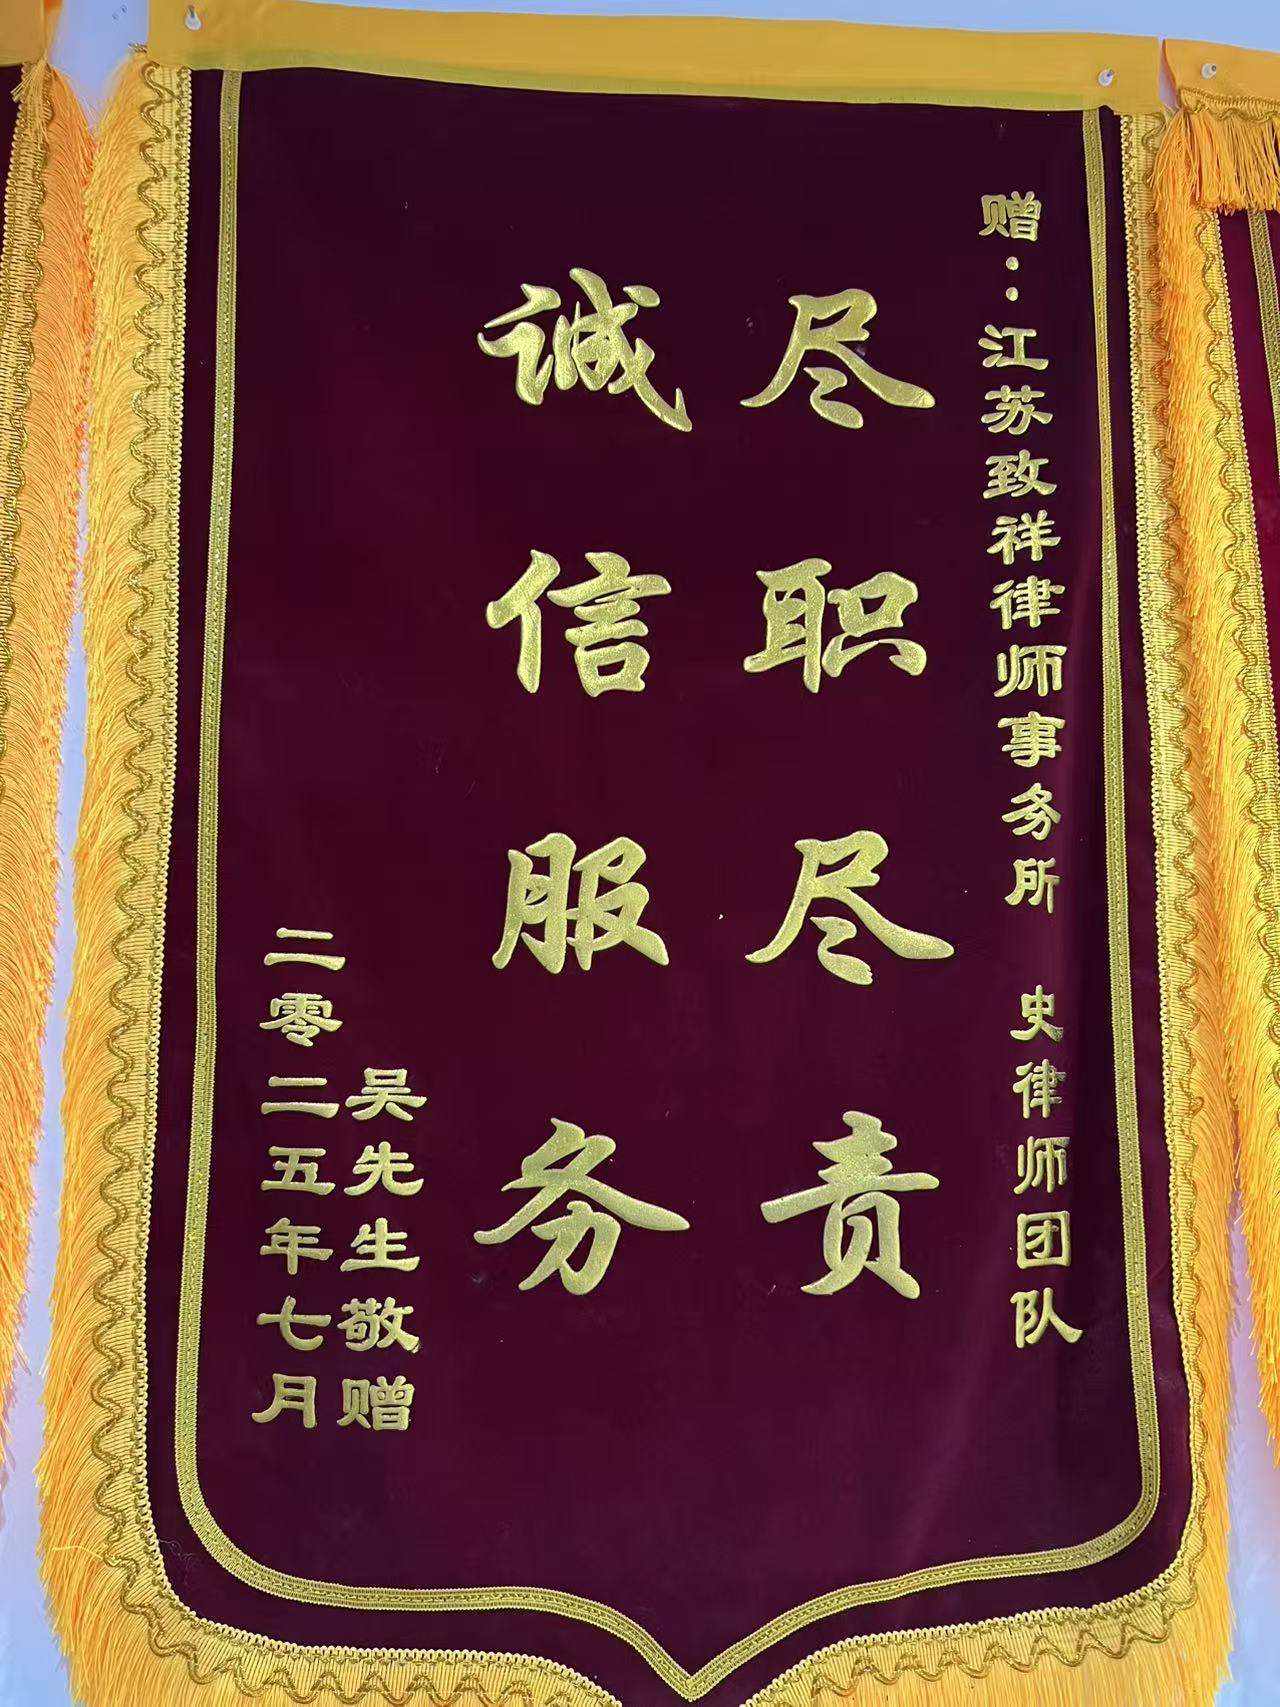 赠：江苏致祥律师事务所 史律师团队
尽职尽责
诚信服务
吴先生敬赠
二零二五年七月